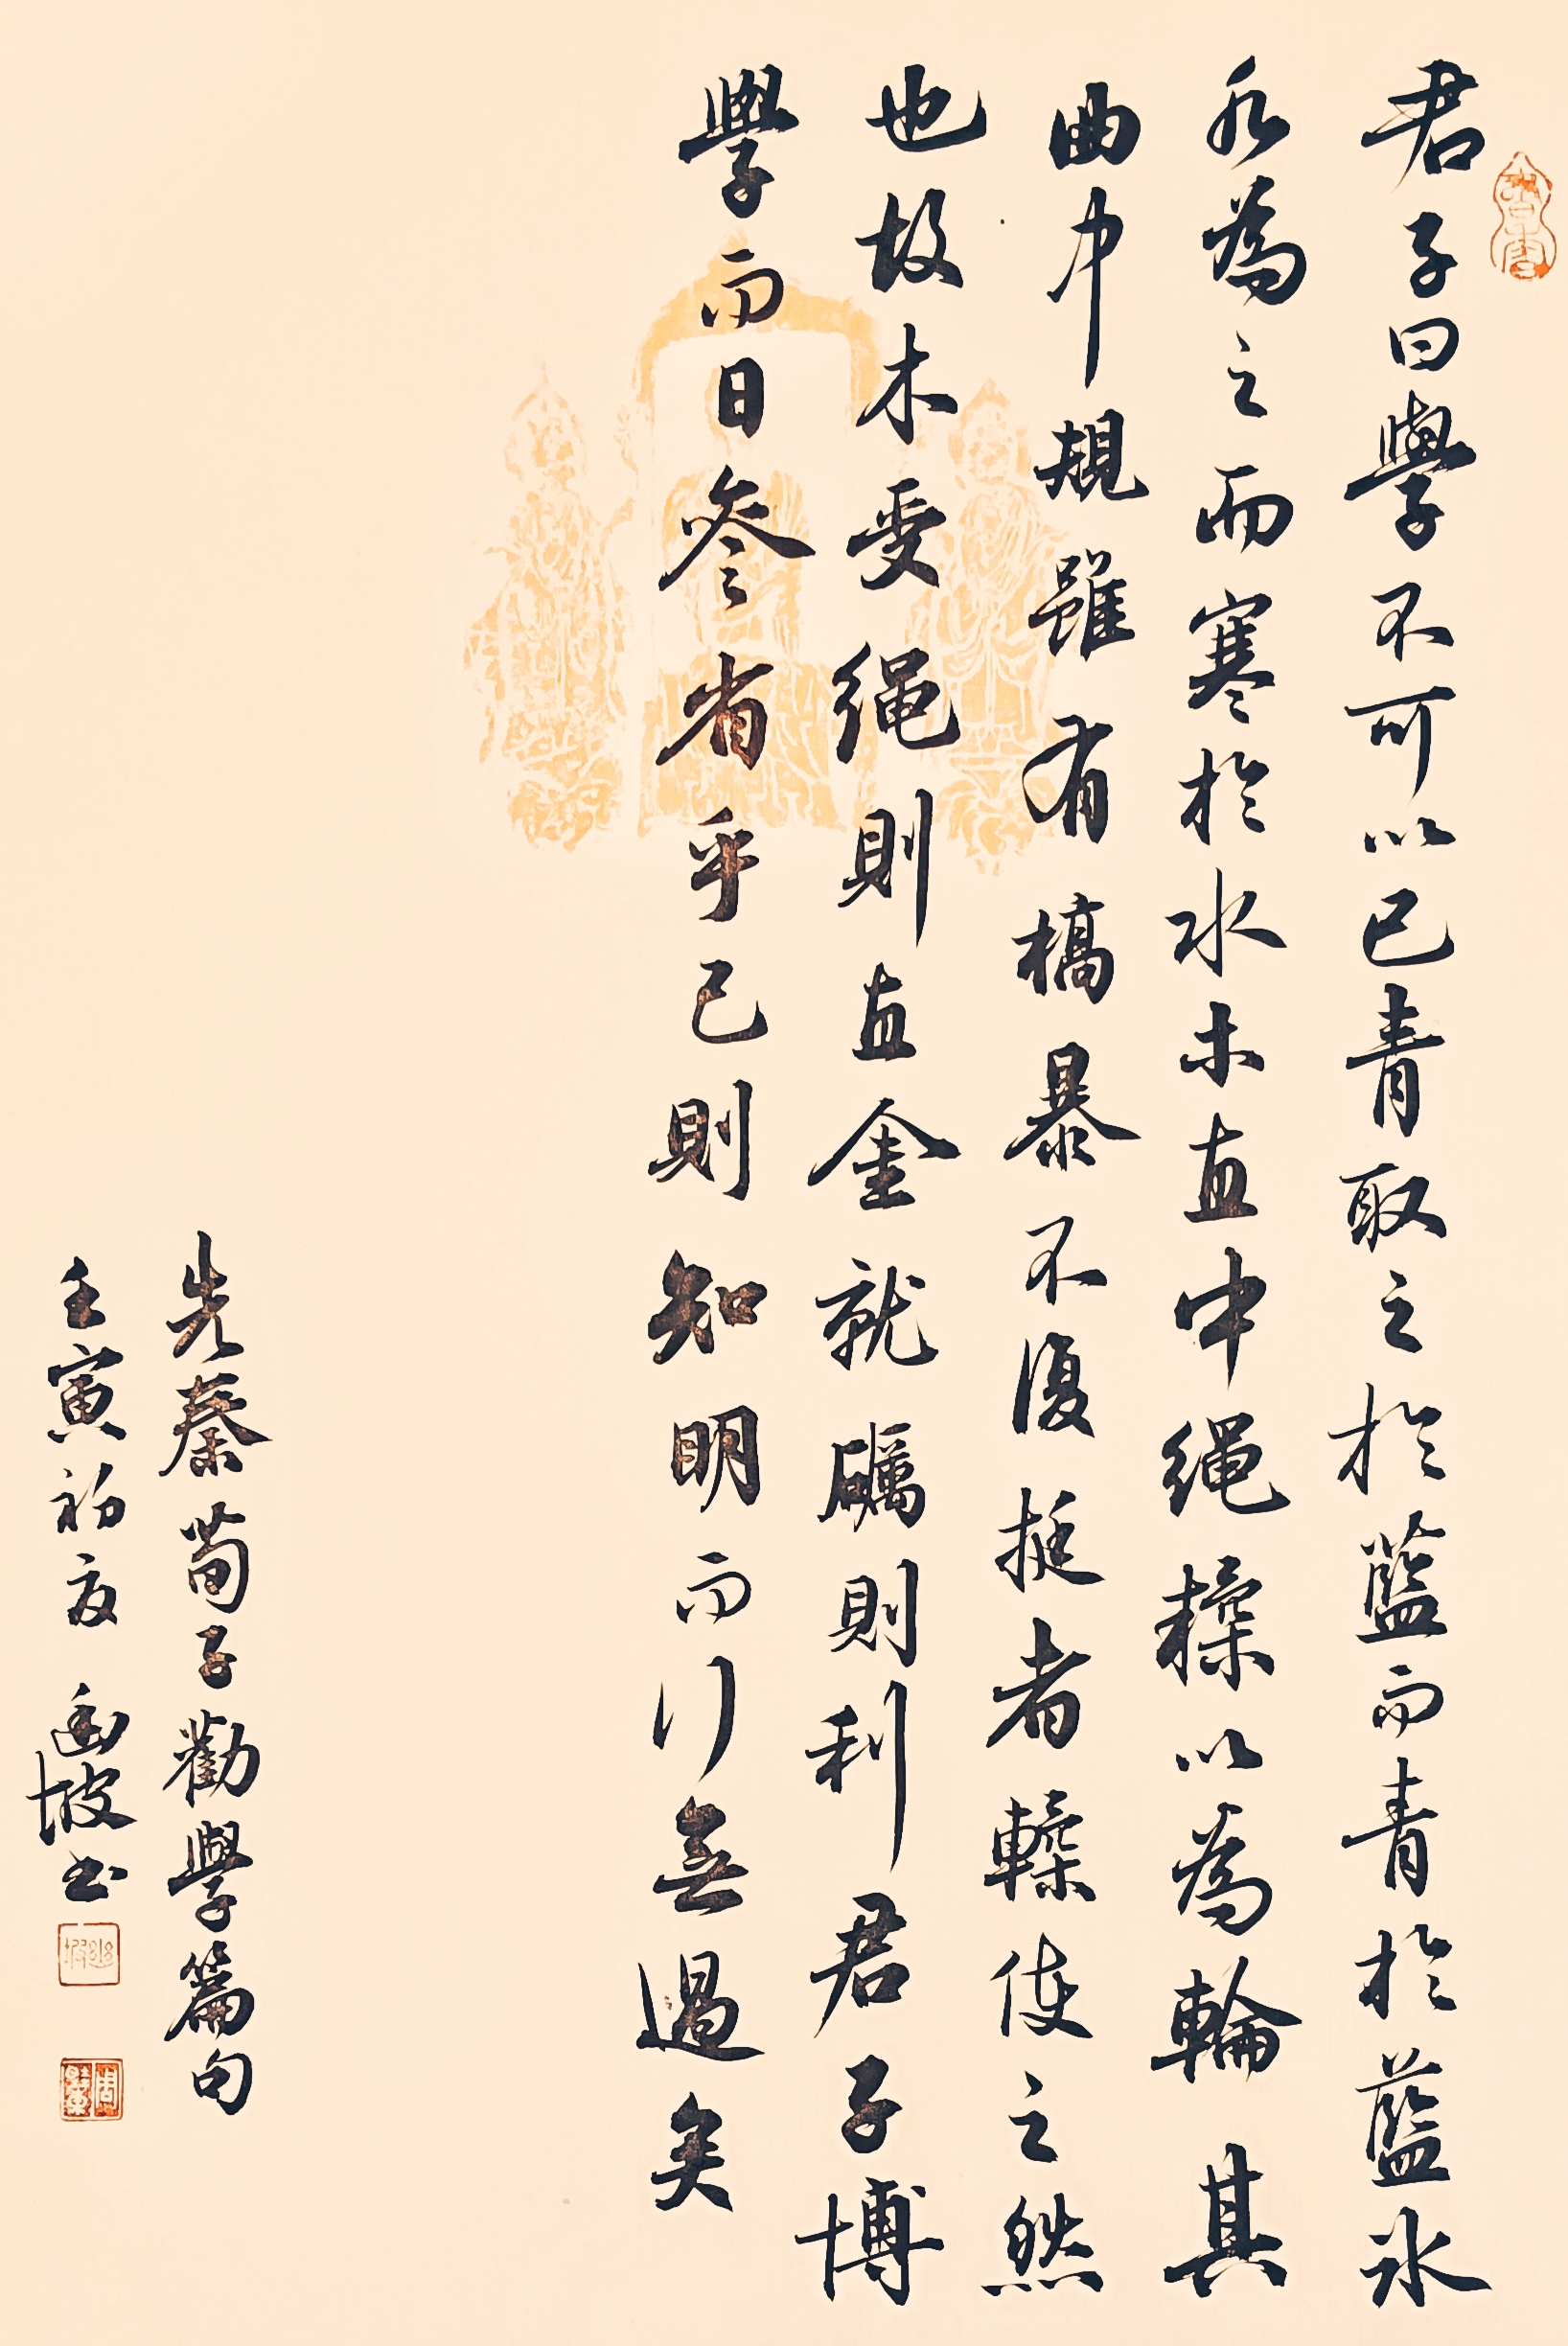 君子曰學不可以已青取之於藍而青於藍冰
水為之而寒於水木直中绳輮以為輪其
曲中規雖有槁暴不復挺者輮使之然
也故木受绳則直金就礪則利君子博
學而日參省乎己則知明而行無過矣
先秦荀子勸學篇句
壬寅初夏 幽坡書
幽坡